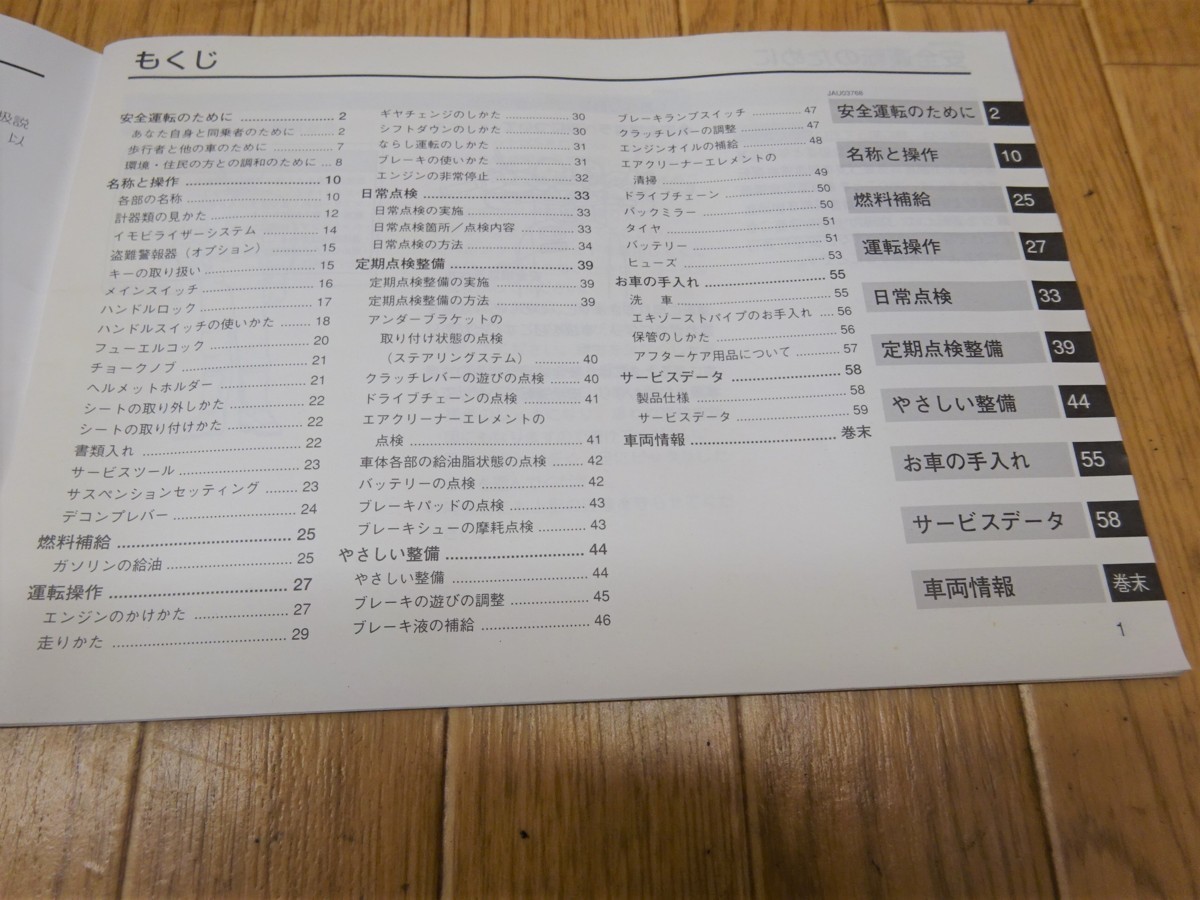 扱説
以上
もくじ
安全運転のために ............ 2
あなた自身と同乗者のために ........ 2
歩行者と他の車のために ............ 7
環境・住民の方との調和のために ... 8
名称と操作 ............ 10
各部の名称 ............ 10
計器類の見かた ............ 12
イモビライザーシステム ............ 14
盗難警報器（オプション） ............ 15
キーの取り扱い ............ 15
メインスイッチ ............ 16
ハンドルロック ............ 17
ハンドルスイッチの使いかた ........ 18
フューエルコック ............ 20
チョークノブ ............ 21
ヘルメットホルダー ............ 21
シートの取り外しかた ............ 22
シートの取り付けかた ............ 22
書類入れ ............ 22
サービスツール ............ 23
サスペンションセッティング ........ 23
デコンプレバー ............ 24
燃料補給 ............ 25
ガソリンの給油 ............ 25
運転操作 ............ 27
エンジンのかけかた ............ 27
走りかた ............ 29
ギヤチェンジのしかた ............ 30
シフトダウンのしかた ............ 30
ならし運転のしかた ............ 31
ブレーキの使いかた ............ 31
エンジンの非常停止 ............ 32
日常点検 ............ 33
日常点検の実施 ............ 33
日常点検箇所／点検内容 ............ 33
日常点検の方法 ............ 34
定期点検整備 ............ 39
定期点検整備の実施 ............ 39
定期点検整備の方法 ............ 39
アンダーブラケットの
取り付け状態の点検
（ステアリングステム） ............ 40
クラッチレバーの遊びの点検 ........ 40
ドライブチェーンの点検 ............ 41
エアクリーナーエレメントの
点検 ............ 41
車体各部の給油脂状態の点検 ........ 42
バッテリーの点検 ............ 42
ブレーキパッドの点検 ............ 43
ブレーキシューの摩耗点検 ............ 43
やさしい整備 ............ 44
やさしい整備 ............ 44
ブレーキの遊びの調整 ............ 45
ブレーキ液の補給 ............ 46
ブレーキランプスイッチ ............ 47
クラッチレバーの調整 ............ 47
エンジンオイルの補給 ............ 48
エアクリーナーエレメントの
清掃 ............ 49
ドライブチェーン ............ 50
バックミラー ............ 50
タイヤ ............ 51
バッテリー ............ 51
ヒューズ ............ 53
お車の手入れ ............ 55
洗　車 ............ 55
エキゾーストパイプのお手入れ .... 56
保管のしかた ............ 56
アフターケア用品について ............ 57
サービスデータ ............ 58
製品仕様 ............ 58
サービスデータ ............ 59
車両情報 ............ 巻末
JAU03768
安全運転のために 2
名称と操作 10
燃料補給 25
運転操作 27
日常点検 33
定期点検整備 39
やさしい整備 44
お車の手入れ 55
サービスデータ 58
車両情報 巻末
1